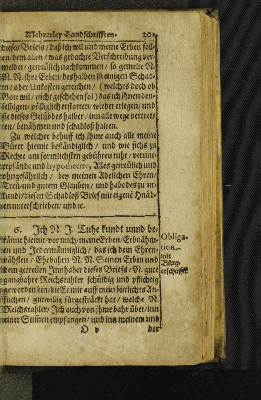 Mancherley Handschrifften. 201
dieses Brieffs / daß ich will und meine Erben sol-
len / dem allen / was gedachte Verschreibung ver-
meldet / gewißlich nachkommen / so gemelte N.
N. N. ihre Erben / deßhalben in einigen Schad-
en / oder Unkosten gereichen / (welches doch ob
Gott wil / nicht geschehen sol) das ich ihnen den-
selbigen / völliglich erstatten / wieder erlegen / und
sie dieses Gelübdes halber / inn alle wege vertret-
ten / benähmen und schadloß halten.
Zu welcher behuff ich ihme auch alle meine
Güter hiemit beständiglich / und wie sichs zu
Recht am förmlichsten gebühren mag / verun-
terpfände und hypothecire, Alles getrewlich und
ungefährlich / bey meinen Adelichen Ehren /
Trew und gutem Glauben / und habe des zu ur-
kunde / diesen Schadloß Brief mit eigener Hand
unterschrieben / und ꝛc.
6. Ich N. J. Tuhe kundt unnd be-
känne hiemit vor mich / meine Erben / Erbnähm-
en und Jedermänniglich / das ich dem Ehren-
Obliga-
tion
mit
Bürg-
erschafft
N. N. Seinen Erben und
dem getrewen Innhaber dieses Brieffs / N. gute
gangbahre Reichsthaler schüldig und pflichtig
geworden bin / die Er mir auff mein bittliches An-
suchen / gutwillig fürgestrackt hat / welche N.
Reichsthaler / Ich auch von ihme bahr über / inn
einer Summen empfangen / und inn meinem und
O v der